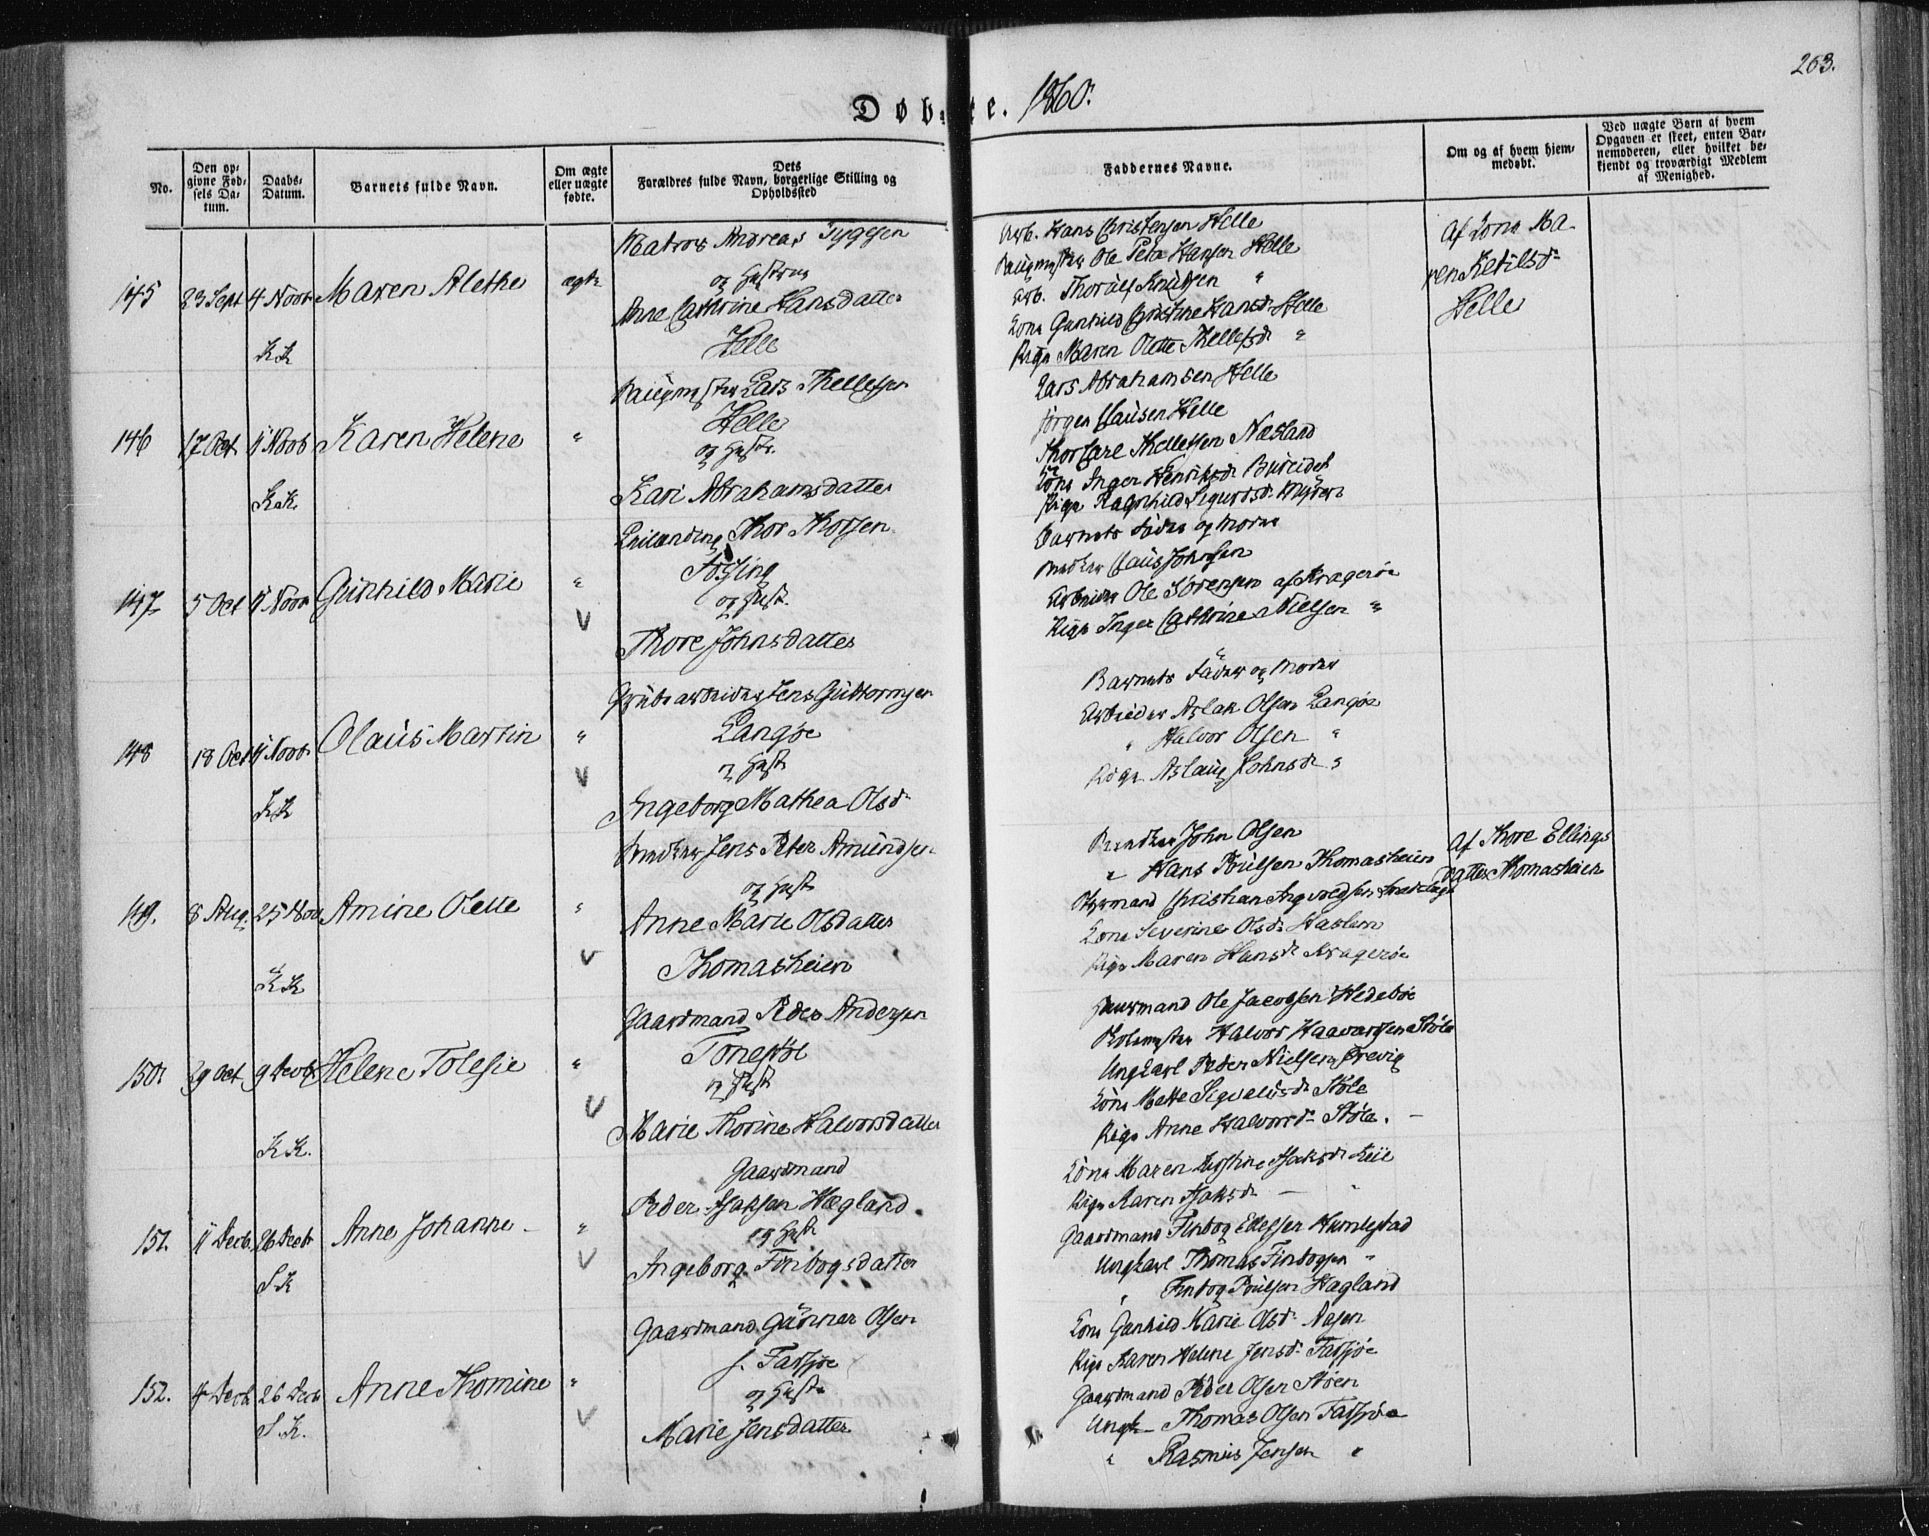 263.
Døbte. 1860.
No.
Den opgivne Fødsels Datum.
Daabs-Datum.
Barnets fulde Navn.
Om ægte eller uægte fødte.
Dets Forældres fulde Navn, borgerlige Stilling og Opholdssted
Faddernes Navne.
Om og af hvem hjemmedøbt.
Ved uægte Børn af hvem Opgaven er skeet, enten Barnemoderen, eller hvilket bekjendt og troværdigt Medlem af Menighed.
145 23 Sept 4 Novb Maren Alethe ægte
KK
Matros Andreas Tygesen
og Hustrue
Anne Cathrine Hansdatter
Helle
Arb. Hans Christensen Helle
Ole Peter Hansen Helle
Arb. Thorulf Knudsen "
Kone Gunhild Christine Hansd. Helle
Pige Maren Olette Thellefsd. "
Af Kone Ma-
ren Ketilsd.
Helle
146 17 Oct 11 Novb Karen Helene "
KK
Lars Thellefsen
Helle
og Hustr.
Kari Abrahamsdatter
Lars Abrahamsen Helle
Jørgen Clausen Helle
Thor Carl Thellefsen Næsland
Kone Inger Henriksd. Bureidet
Pige Ragnhild Sigurdsd. Myren
147 5 Oct 11 Novb Gunhild Marie "
V
Thor Thorsen
Fossing
og Hust.
Thore Johnsdatter
Barnets Fader og Moder
Claus Johnsen
Arbeider Ole Sørensen af Kragerøe
Pige Inger Cathrine Nielsen "
148 18 Oct 11 Novb Olaus Martin "
V
KK
Grubearbeider Jens Guttormsen
Langøe
og Hust
Ingeborg Mathea Olsd.
Barnets Fader og Moder
Arbeider Aslak Olsen Langøe
" Halvor Olsen "
Pige Aslaug Johnsd. "
149. 8 Aug. 25 Nov Amine Olette "
V
KK
Jens Peter Amundsen
og Hust
Anne Marie Olsdatter
Thomasheien
John Olsen
" Hans Poulsen Thomasheien
Christian Ingvoldsen
Kone Severine Olsd. Haslem
Pige Maren Hansd. Kragerøe
Af Thore Ellings
datter Thomasheien
150. 29 Oct 9 Decb Helene Tolefie "
V
KK.
Gaardmand Peder Andersen
Tonestøl
og Hust
Marie Thorine Halvorsdatter
Ole Jacobsen Hedebøe
Halvor Haavorsen Støle
Ungkarl Peder Nielsen
Kone Mette Sigvaldsd. Støle
Pige Anne Halvorsd. Støle.
151. 11 Decb. 26 Decb Anne Johanne "
V
SK
Gaardmand
Peder Isaksen Hægland.
og Hust
Ingeborg Finbogsdatter
Kone Maren Kirstine Isaksd.
Pige Karen Isaksd. — "
Gaardmand Finbog Ellefsen Humlestad
Ungkarl Thomas Finbogsen "
" Finbog Poulsen Hægland
152. 4 Decb 26 Decb Anne Thomine "
V
SK.
Gaardmand Gunnar Olsen
Farsjøe
og Hust
Marie Jensdatter
Kone Gunhild Marie Olsd. Aasen
Pige Karen Helene Jensd. Farsjøe
Gaardmand Peder Olsen Støen
Ungk Thomas Olsen Farsjøe
" Rasmus Jensen "